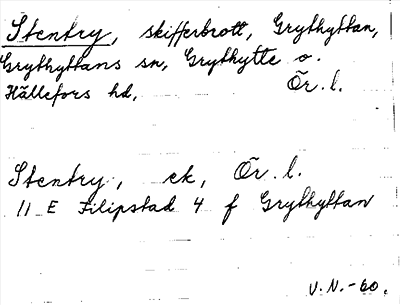 Stentry, skifferbrott, Grythyttan,
Grythyttans sn, Grythytte o.
Hällefors hd, Ör. l.
Stentry, ek, Ör. l.
11 E Filipstad 4 f Grythyttan
V. N. -60.